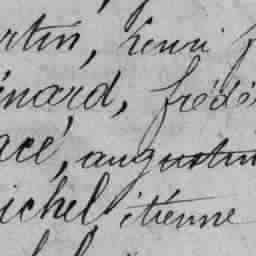 rtin, henri f
énard, frédé
acé, augustin
ichel, étienne